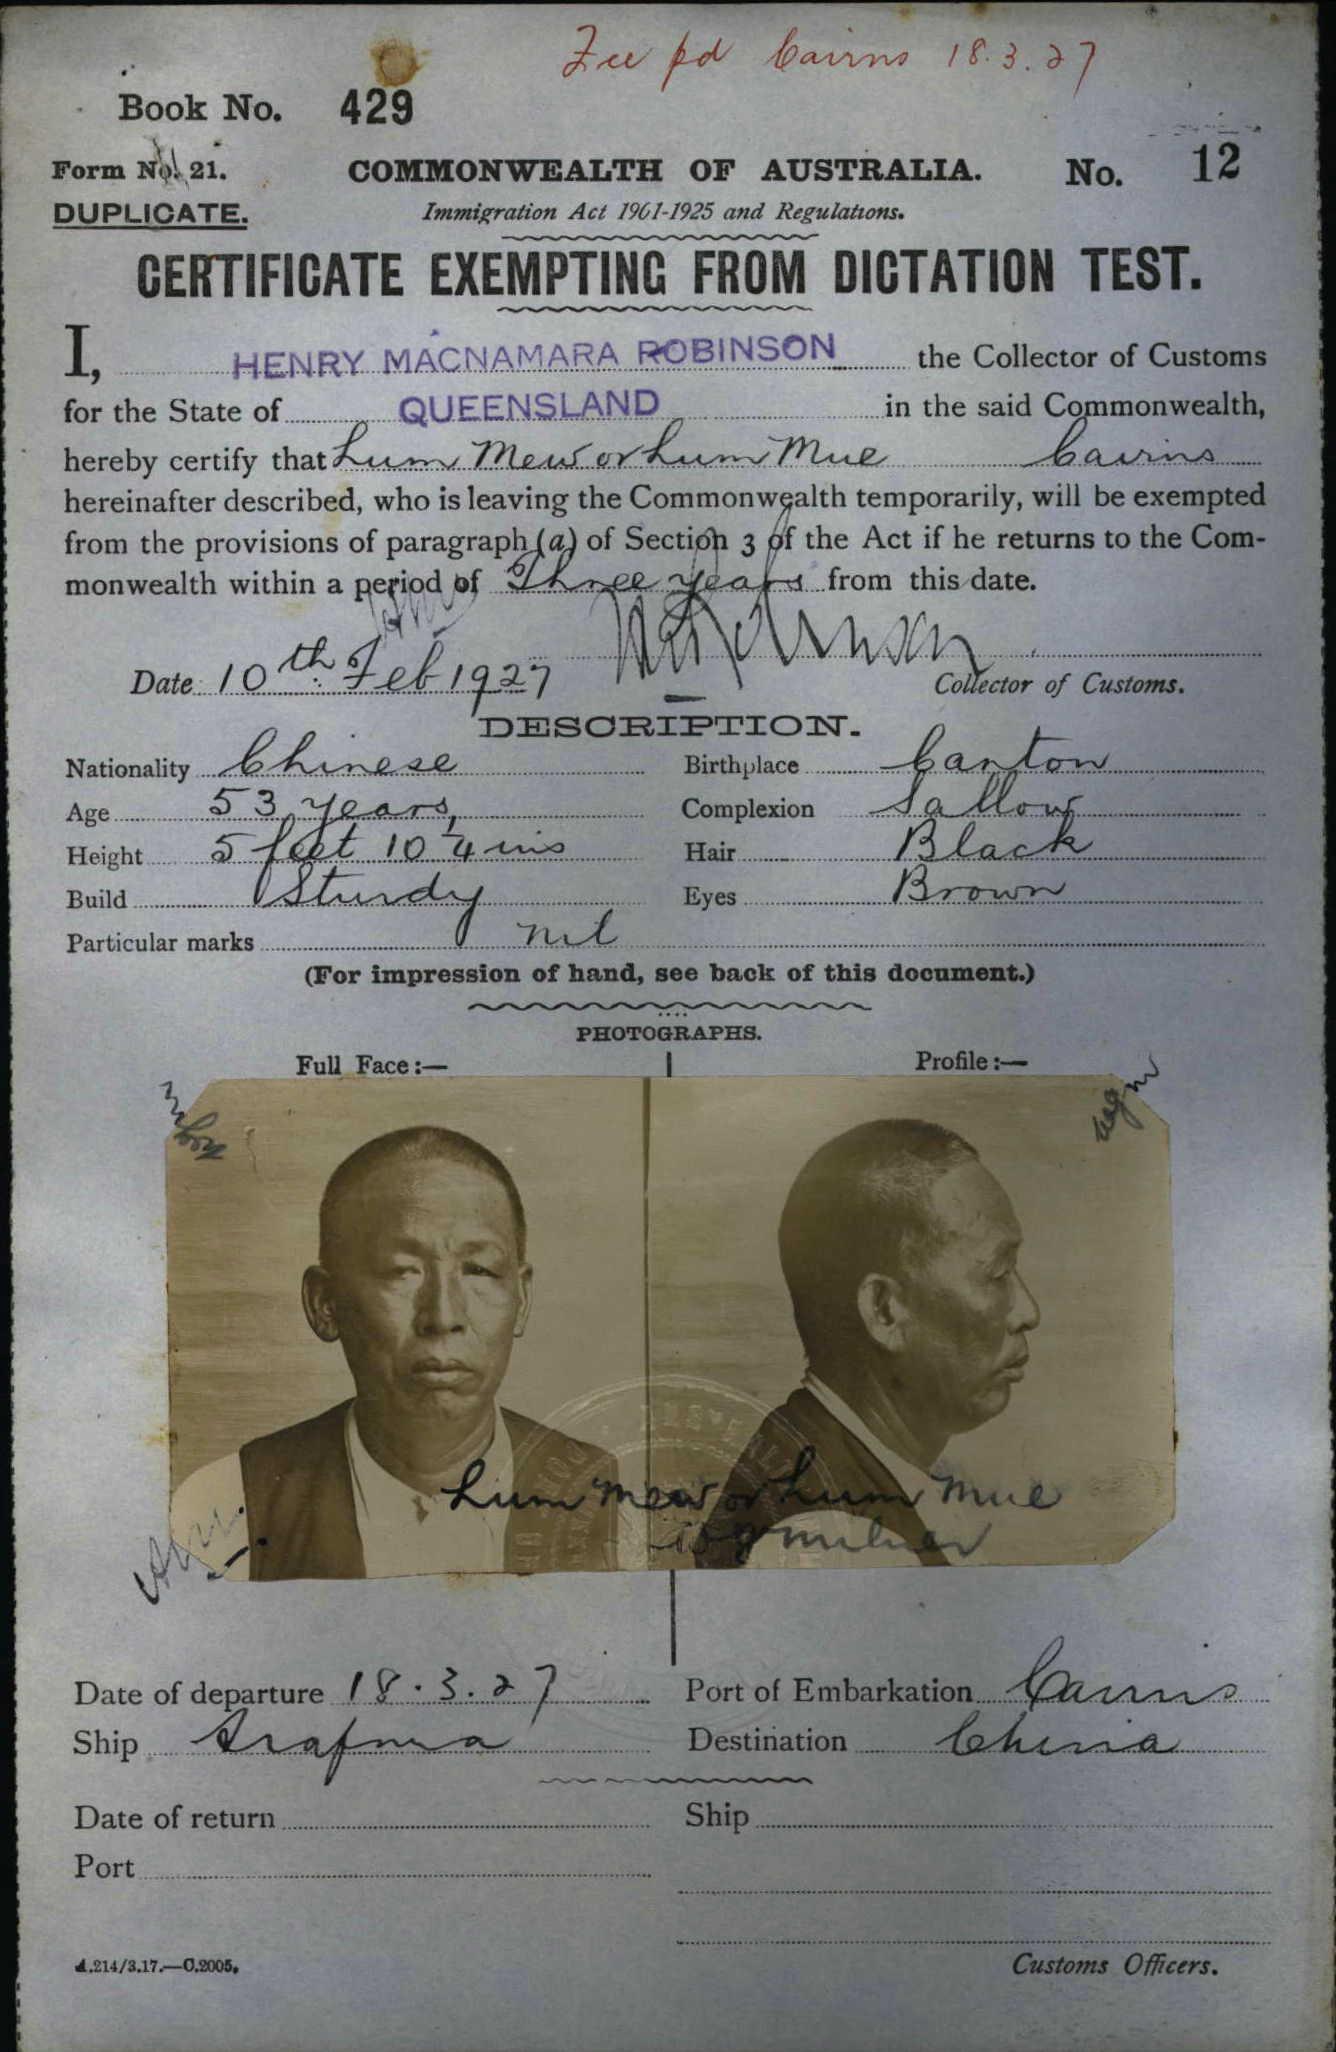 Fee pd Cairns 18.3.27
Book No. 429
Form No. 21.
COMMONWEALTH OF AUSTRALIA.
No. 12
DUPLICATE.
Immigration Act 1901-1925 and Regulations.
CERTIFICATE EXEMPTING FROM DICTATION TEST.
I, HENRY MACNAMARA ROBINSON the Collector of Customs
for the State of QUEENSLAND in the said Commonwealth,
hereby certify that Lum Mew or Lum Mue Cairns
hereinafter described, who is leaving the Commonwealth temporarily, will be exempted
from the provisions of paragraph (a) of Section 3 of the Act if he returns to the Com-
monwealth within a period of Three years from this date.
Date 10th Feb 1927
Collector of Customs.
DESCRIPTION.
Nationality Chinese Birthplace Canton
Age 53 years, Complexion Sallow
Height 5 feet 10 1/4 ins Hair Black
Build Sturdy Eyes Brown
Particular marks nil
(For impression of hand, see back of this document.)
PHOTOGRAPHS.
Full Face:— Profile:—
Lum Mew or Lum Mue
Date of departure 18.3.27 Port of Embarkation Cairns
Ship Arafura Destination China
Date of return Ship
Port
A.214/3.17.—C.2005.
Customs Officers.